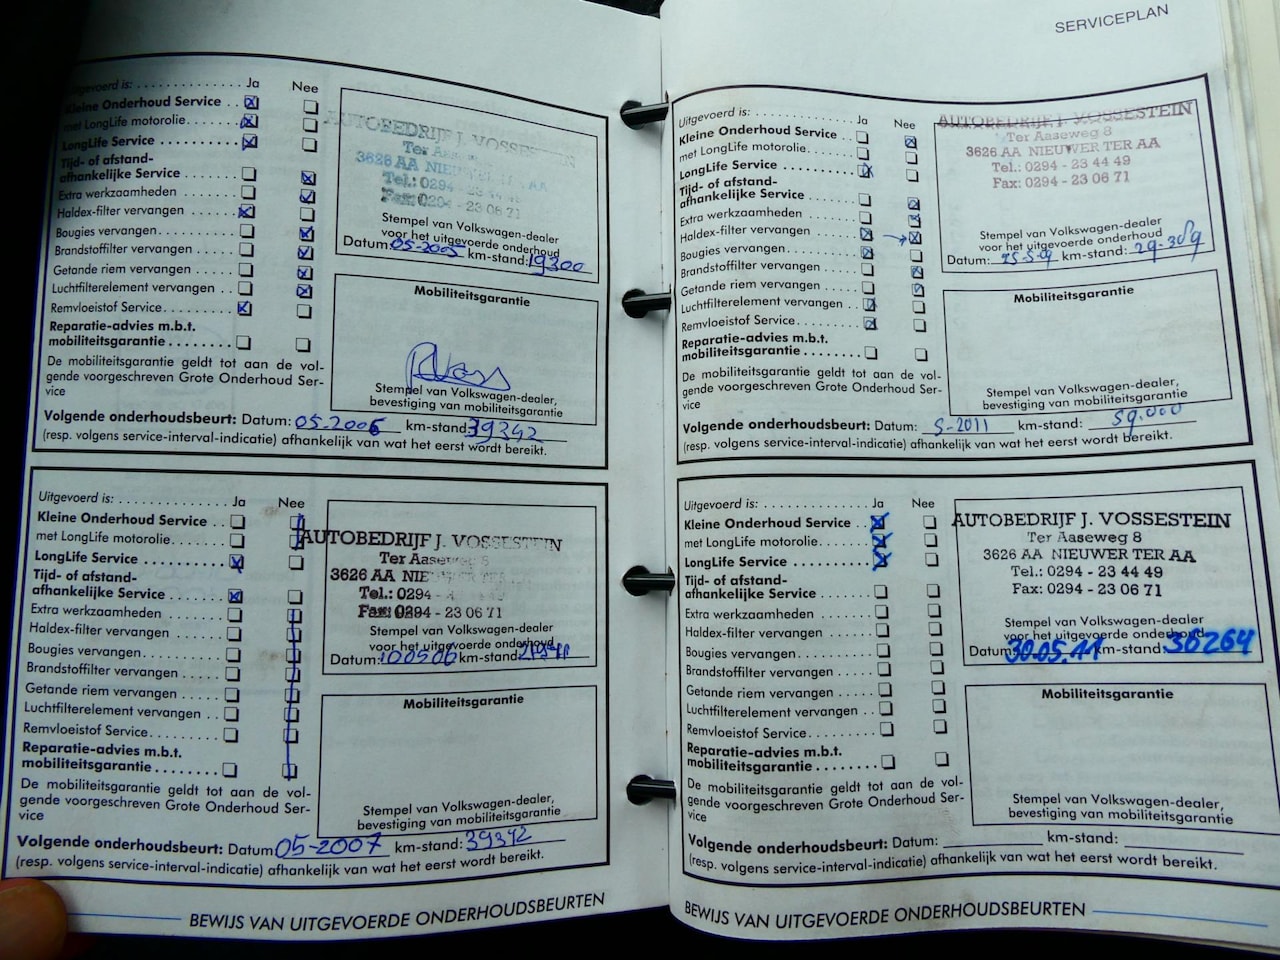 SERVICEPLAN
Uitgevoerd is: Ja Nee
Kleine Onderhoud Service
met LongLife motorolie
LongLife Service
Tijd- of afstand-
afhankelijke Service
Extra werkzaamheden
Haldex-filter vervangen
Bougies vervangen
Brandstoffilter vervangen
Getande riem vervangen
Luchtfilterelement vervangen
Remvloeistof Service
Reparatie-advies m.b.t.
mobiliteitsgarantie
De mobiliteitsgarantie geldt tot aan de vol-
gende voorgeschreven Grote Onderhoud Ser-
vice
AUTOBEDRIJF J. VOSSESTEIN
Ter Aaseweg
3626 AA NIEUWER TER AA
Tel.: 0294 - 23 44 49
Fax: 0294 - 23 06 71
Stempel van Volkswagen-dealer
voor het uitgevoerde onderhoud
Datum: 05-2005 km-stand: 19300
Mobiliteitsgarantie
Stempel van Volkswagen-dealer,
bevestiging van mobiliteitsgarantie
Volgende onderhoudsbeurt: Datum: 05-2006 km-stand: 39342
(resp. volgens service-interval-indicatie) afhankelijk van wat het eerst wordt bereikt.
Uitgevoerd is: Ja Nee
Kleine Onderhoud Service
met LongLife motorolie
LongLife Service
Tijd- of afstand-
afhankelijke Service
Extra werkzaamheden
Haldex-filter vervangen
Bougies vervangen
Brandstoffilter vervangen
Getande riem vervangen
Luchtfilterelement vervangen
Remvloeistof Service
Reparatie-advies m.b.t.
mobiliteitsgarantie
De mobiliteitsgarantie geldt tot aan de vol-
gende voorgeschreven Grote Onderhoud Ser-
vice
AUTOBEDRIJF J. VOSSESTEIN
Ter Aaseweg 8
3626 AA NIEUWER TER
Tel.: 0294 -
Fax: 0294 - 23 06 71
Stempel van Volkswagen-dealer
voor het uitgevoerde onderhoud
Datum: 100506 km-stand:
Mobiliteitsgarantie
Stempel van Volkswagen-dealer,
bevestiging van mobiliteitsgarantie
Volgende onderhoudsbeurt: Datum: 05-2007 km-stand: 39342
(resp. volgens service-interval-indicatie) afhankelijk van wat het eerst wordt bereikt.
BEWIJS VAN UITGEVOERDE ONDERHOUDSBEURTEN
Uitgevoerd is: Ja Nee
Kleine Onderhoud Service
met LongLife motorolie
LongLife Service
Tijd- of afstand-
afhankelijke Service
Extra werkzaamheden
Haldex-filter vervangen
Bougies vervangen
Brandstoffilter vervangen
Getande riem vervangen
Luchtfilterelement vervangen
Remvloeistof Service
Reparatie-advies m.b.t.
mobiliteitsgarantie
De mobiliteitsgarantie geldt tot aan de vol-
gende voorgeschreven Grote Onderhoud Ser-
vice
AUTOBEDRIJF J. VOSSESTEIN
Ter Aaseweg 8
3626 AA NIEUWER TER AA
Tel.: 0294 - 23 44 49
Fax: 0294 - 23 06 71
Stempel van Volkswagen-dealer
voor het uitgevoerde onderhoud
Datum: 25-5-09 km-stand: 29-309
Mobiliteitsgarantie
Stempel van Volkswagen-dealer,
bevestiging van mobiliteitsgarantie
Volgende onderhoudsbeurt: Datum: 5-2011 km-stand: 59.000
(resp. volgens service-interval-indicatie) afhankelijk van wat het eerst wordt bereikt.
Uitgevoerd is: Ja Nee
Kleine Onderhoud Service
met LongLife motorolie
LongLife Service
Tijd- of afstand-
afhankelijke Service
Extra werkzaamheden
Haldex-filter vervangen
Bougies vervangen
Brandstoffilter vervangen
Getande riem vervangen
Luchtfilterelement vervangen
Remvloeistof Service
Reparatie-advies m.b.t.
mobiliteitsgarantie
De mobiliteitsgarantie geldt tot aan de vol-
gende voorgeschreven Grote Onderhoud Ser-
vice
AUTOBEDRIJF J. VOSSESTEIN
Ter Aaseweg 8
3626 AA NIEUWER TER AA
Tel.: 0294 - 23 44 49
Fax: 0294 - 23 06 71
Stempel van Volkswagen-dealer
voor het uitgevoerde onderhoud
Datum: 30.05.11 km-stand: 36264
Mobiliteitsgarantie
Stempel van Volkswagen-dealer,
bevestiging van mobiliteitsgarantie
Volgende onderhoudsbeurt: Datum: km-stand:
(resp. volgens service-interval-indicatie) afhankelijk van wat het eerst wordt bereikt.
BEWIJS VAN UITGEVOERDE ONDERHOUDSBEURTEN